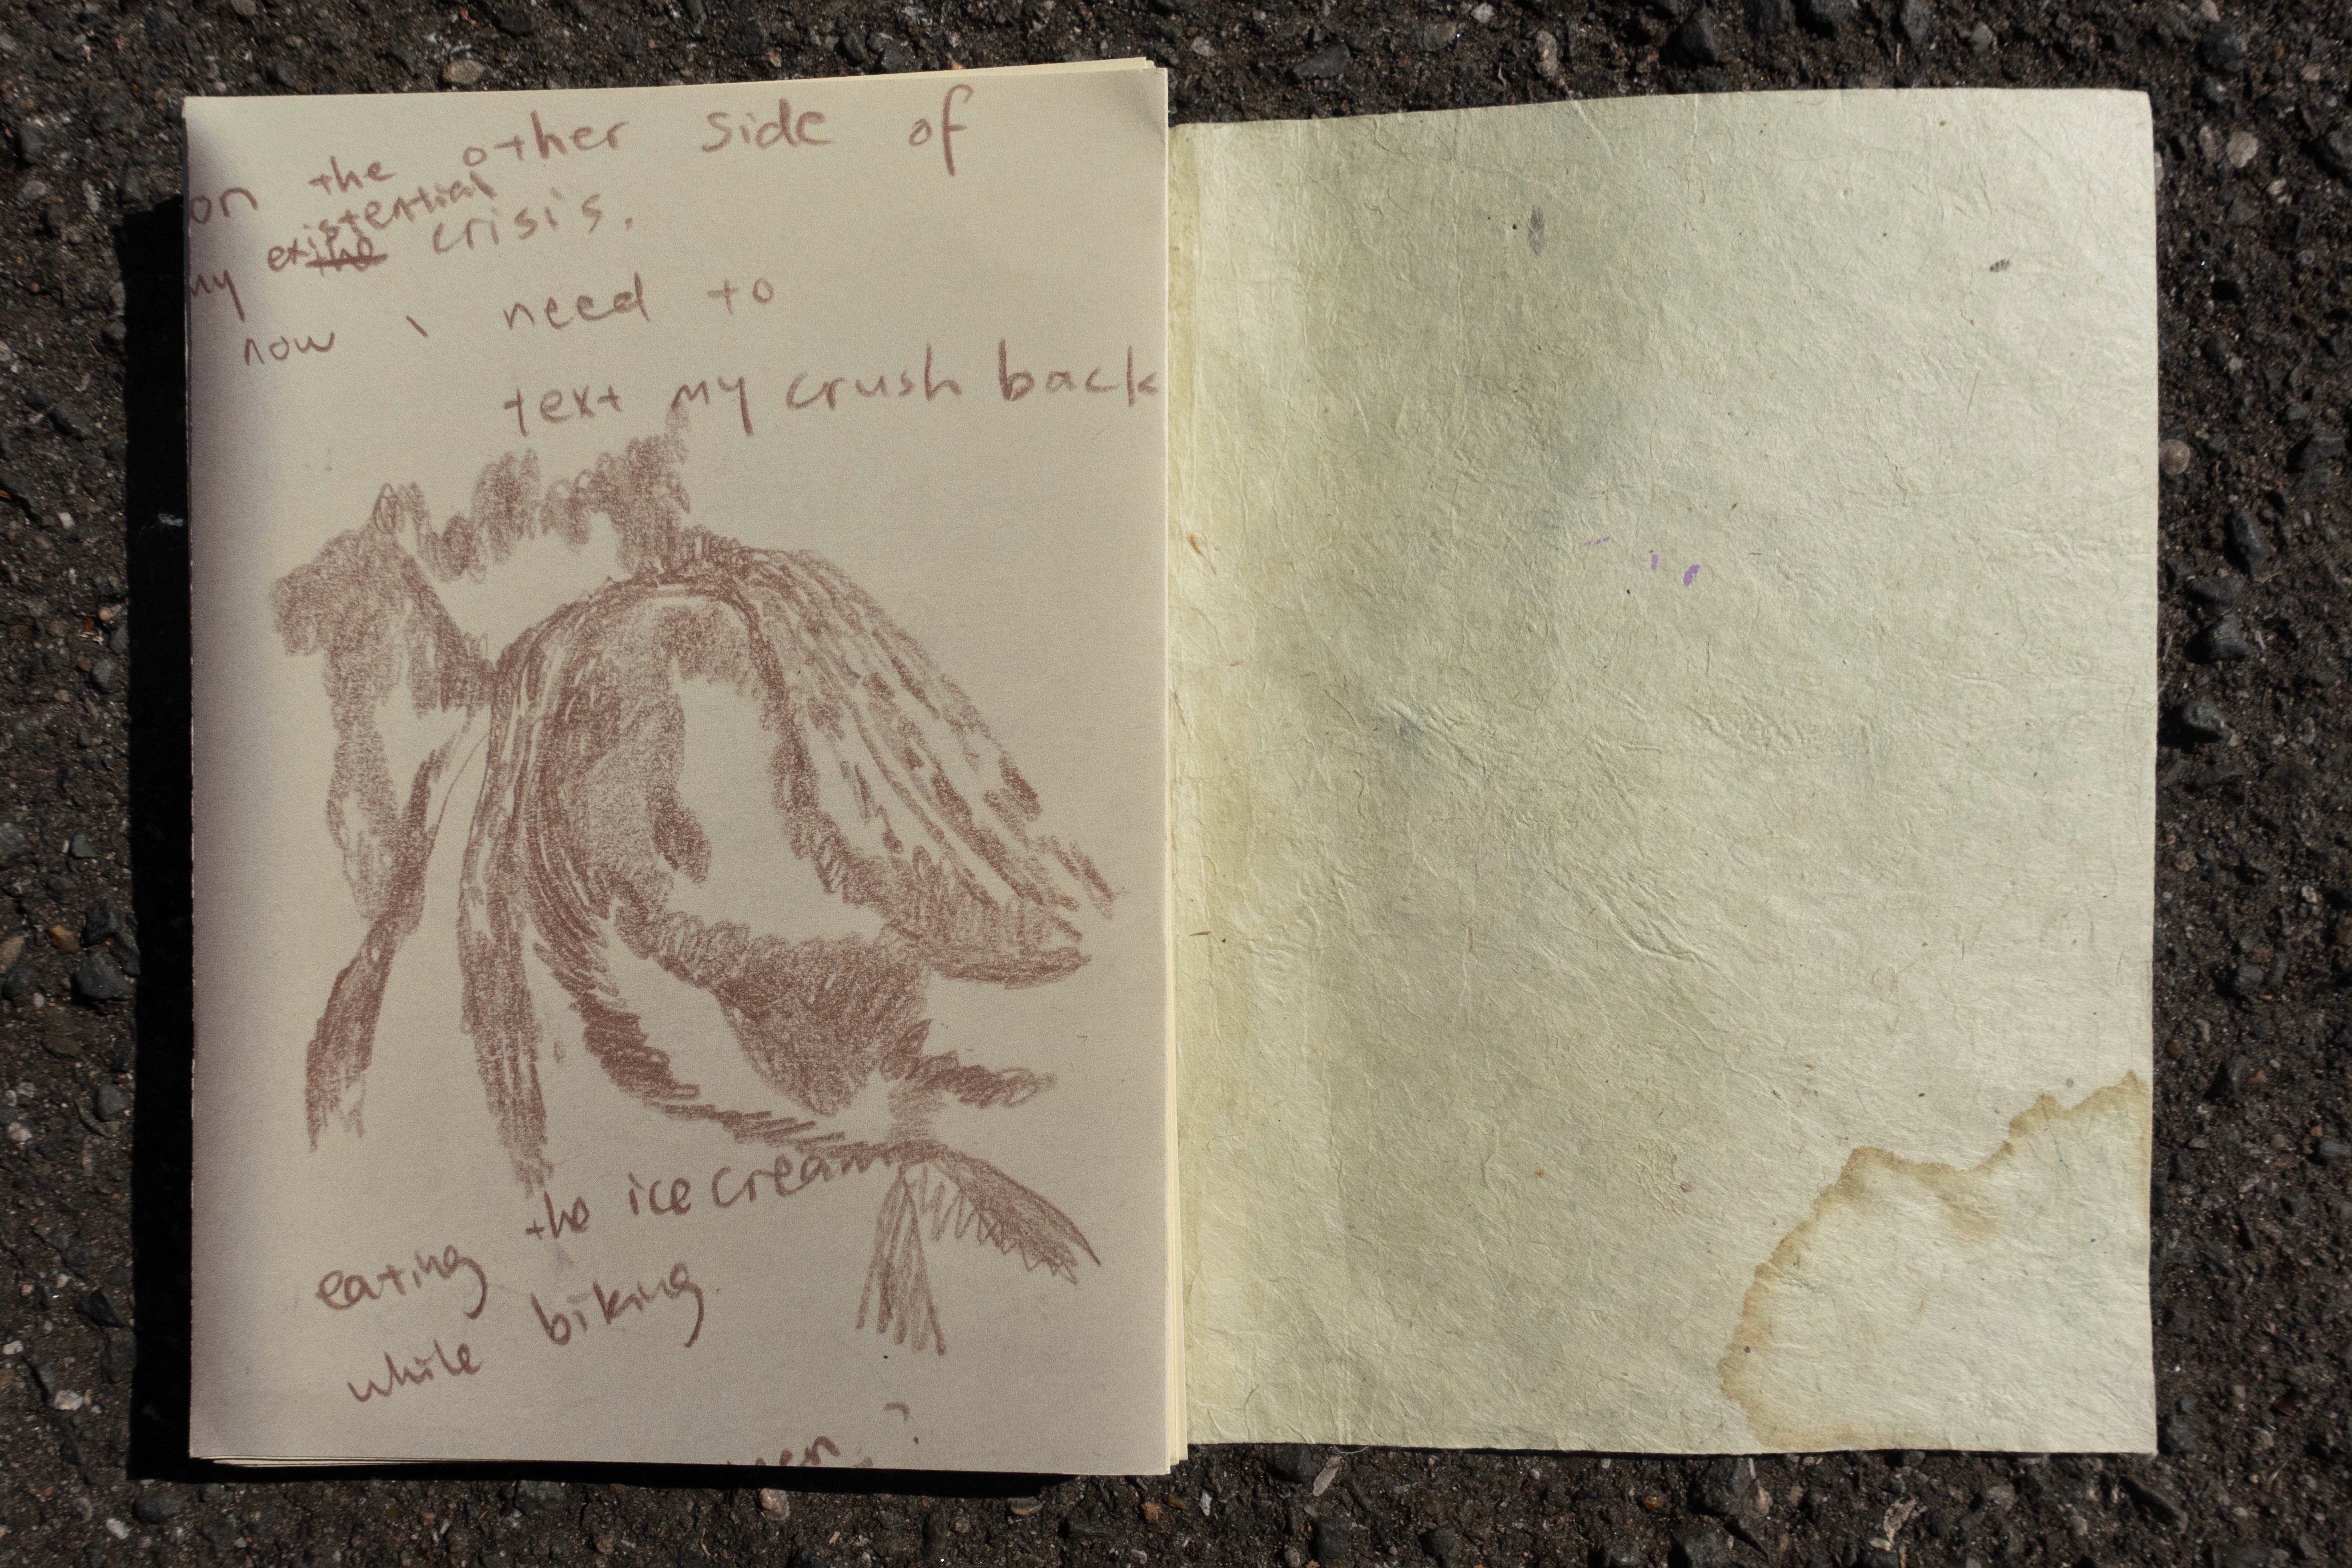 on the other side of
my existential crisis.
now i need to
text my crush back
eating the ice cream
while biking